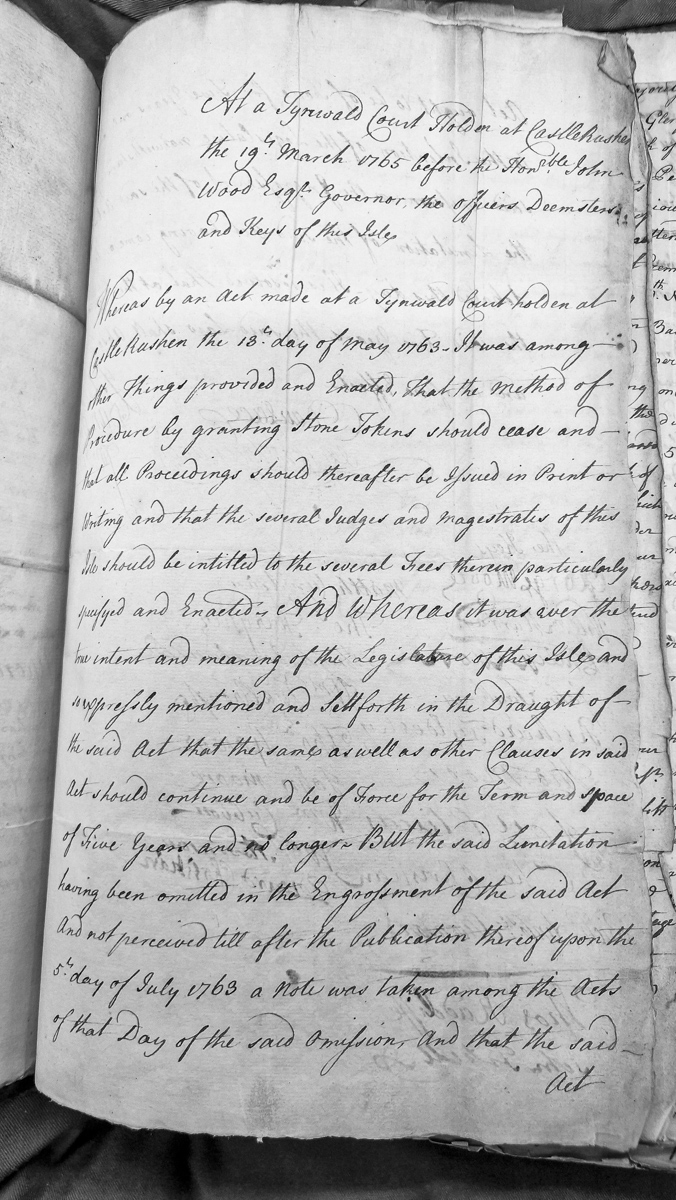 At a Tynwald Court Holden at CastleRushen
the 19th. March 1765 before the Honble. John
Wood Esqr. Governor, the officers Deemsters
and Keys of this Isle
Whereas by an Act made at a Tynwald Court holden at
CastleRushen the 13th day of May 1763 - It was among
other Things provided and Enacted, That the method of
Procedure by granting Stone Tokens should cease and -
that all Proceedings should thereafter be Issued in Print or
Writing and that the several Judges and Magestrates of this
Isle should be intitled to the several Fees therein particularly
specifyed and Enacted - And Whereas it was ever the
true intent and meaning of the Legislature of this Isle and
so expressly mentioned and Settforth in the Draught of -
the said Act that the same as well as other Clauses in said
Act should continue and be of Force for the Term and space
of Five Years and no longer - But the said Limitation
having been omitted in the Engrossment of the said Act
And not perceived till after the Publication thereof upon the
5th day of July 1763 a Note was taken among the Acts
of that Day of the said Omission, And that the said -
Act